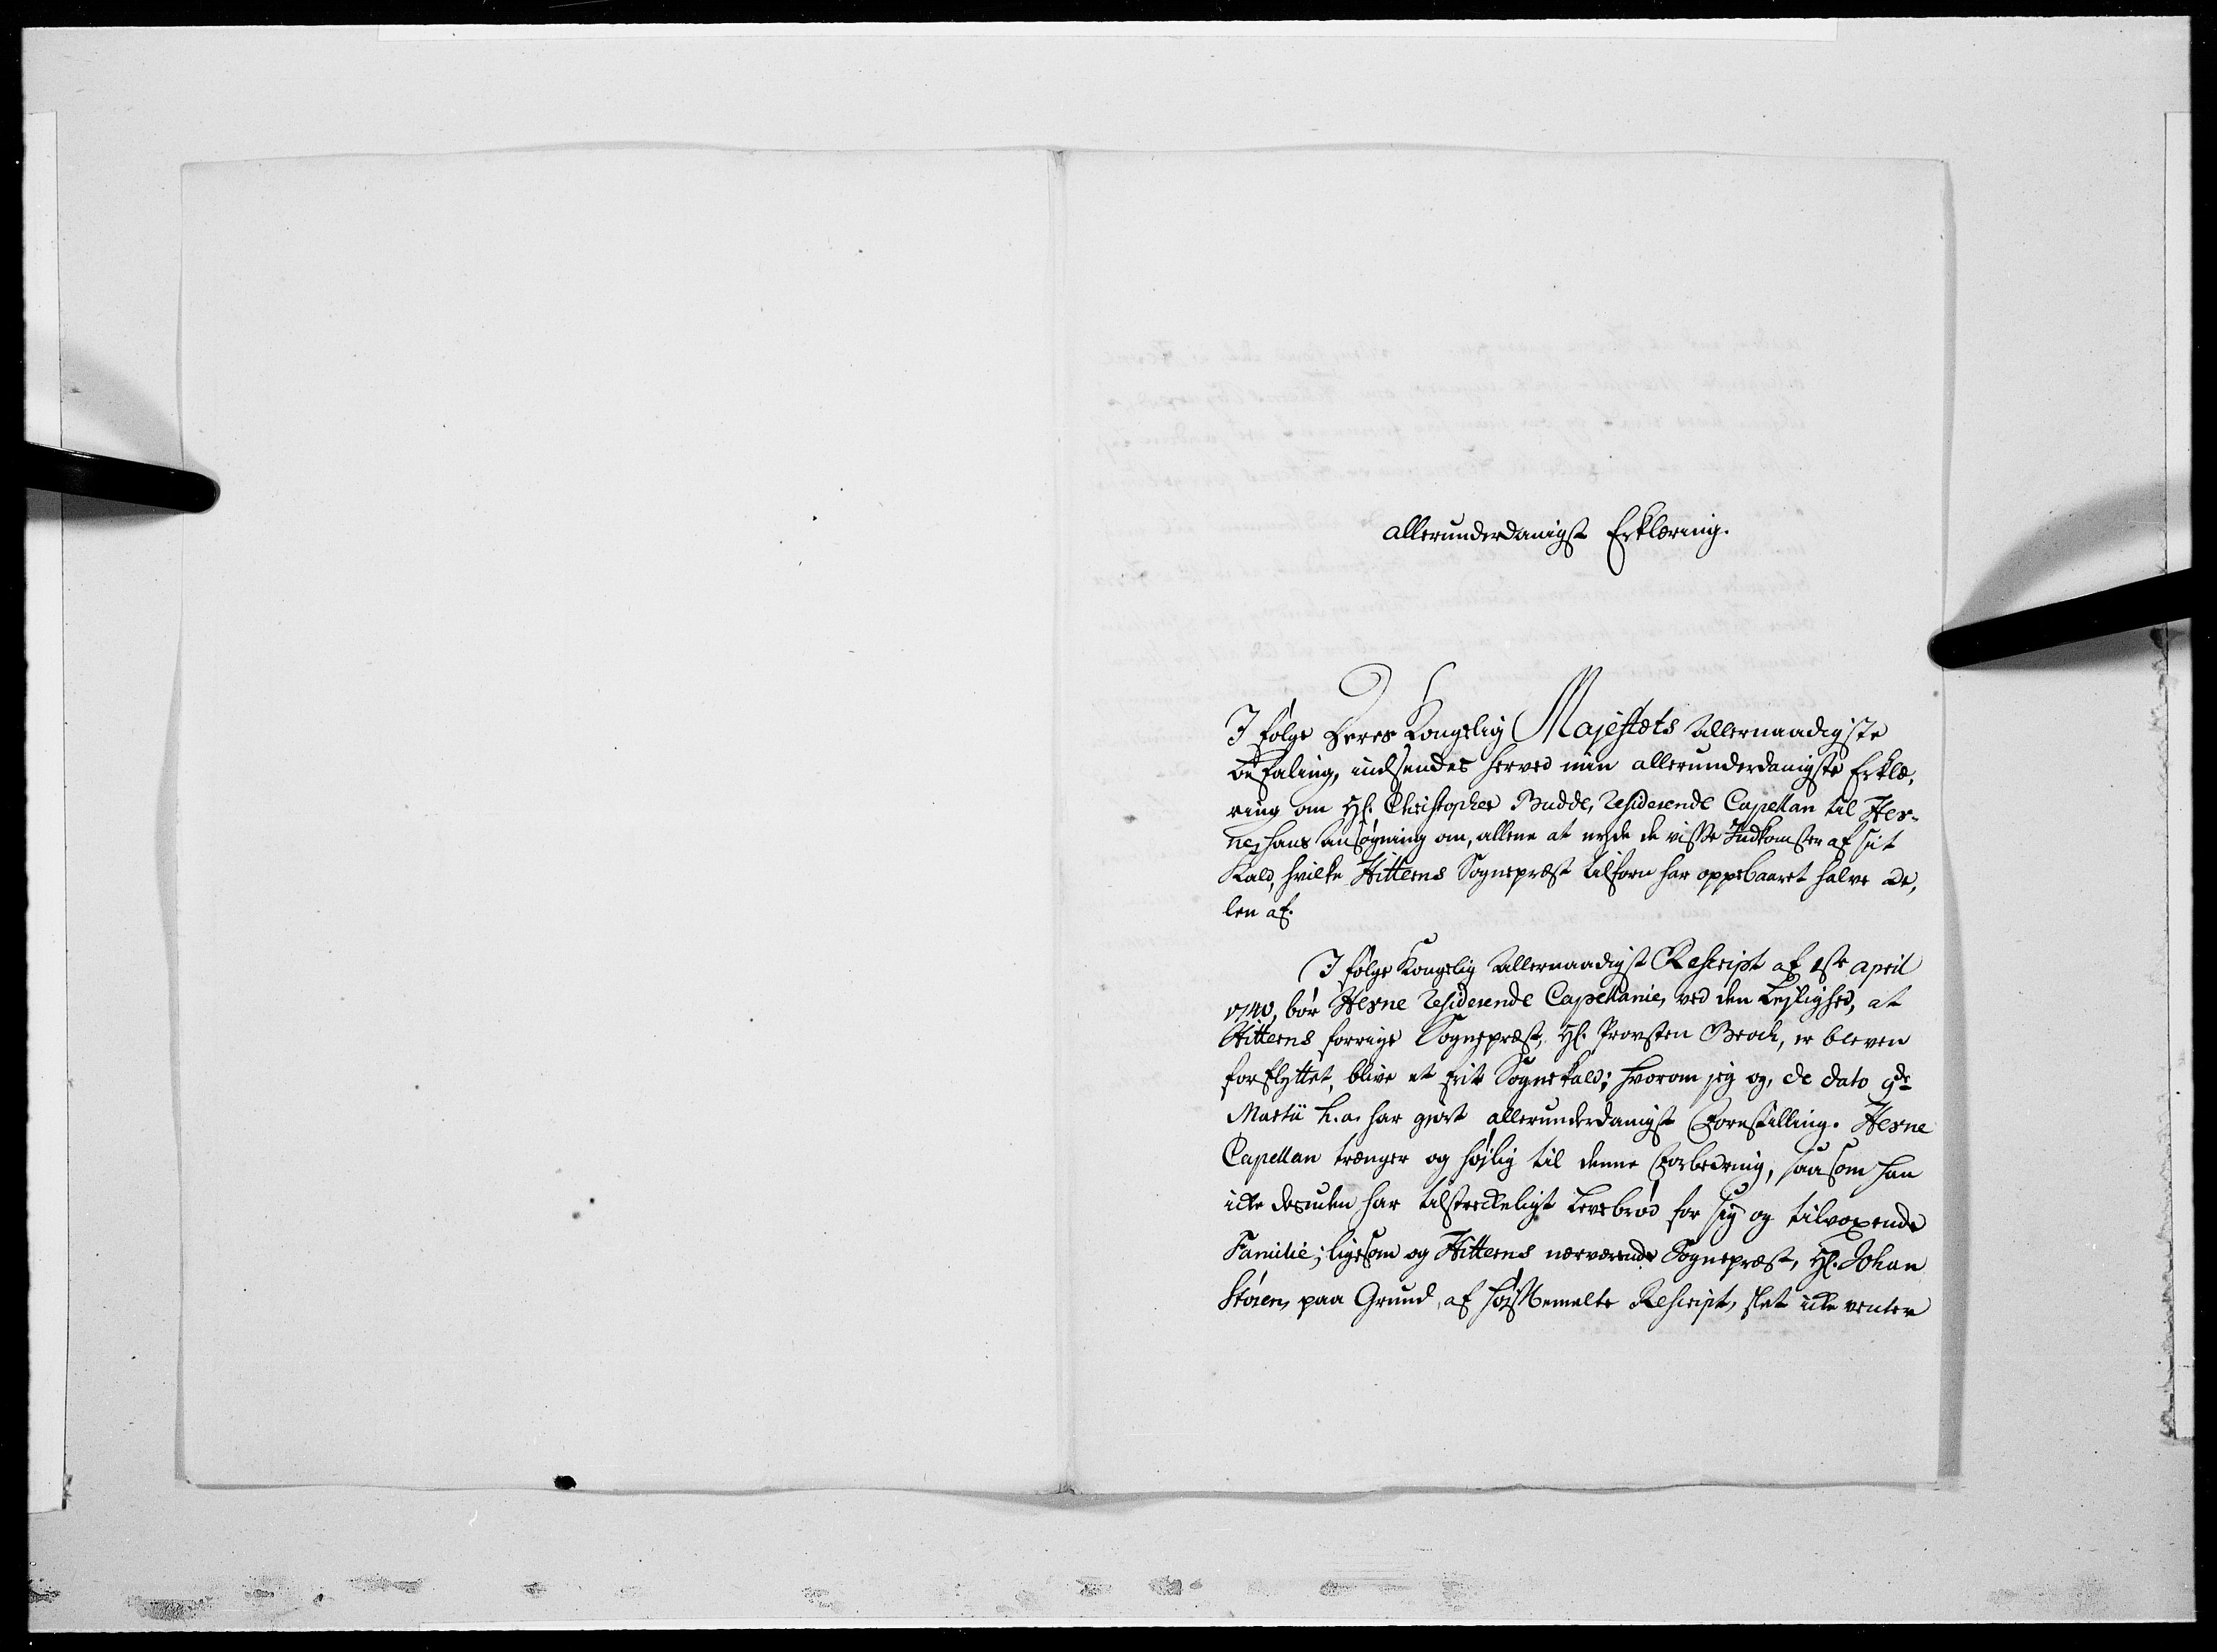 allerunderdanigst Erklæring.
I følge Deres Kongelig Majestæts allernaadigste
befaling, indsendes herved min allerunderdanigste Erklæ,
ring om Hr. Christopher Budde, residerende Capellan til Hev-
ne, hans ansøgning om, allene at nyde de visse Indkomster af sit
Kald, hvilke Hitterns Sognepræst tilforn har oppebaaret halve De,
len af.
I følge Kongelig allernaadigst Rescript af 1ste april
1740, bør Hevne residerende Capellanie, ved den Lejlighed, at
Hitterns forrige Sognepræst, Hr. Provsten Broch, er bleven
forflyttet, blive et frit Sognekald; hvorom jeg og, de dato 9de
Martii h. a. har giort allerunderdanigst Forestilling. Hevne
Capellan trænger og højlig til denne Forbedring, saasom han
icke desuden har tilstreckeligt Levebrød for sig og tilvoxende
Familie; ligesom og Hitterns nærværende Sognepræst, Hr. Johan
Støren, paa Grund, af højstbemelte Rescript, slet icke venter